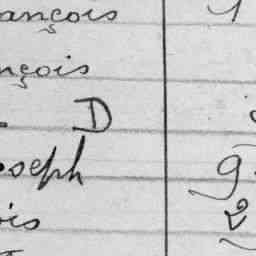 ançois 1
nçois
D
oseph 9
ois 2